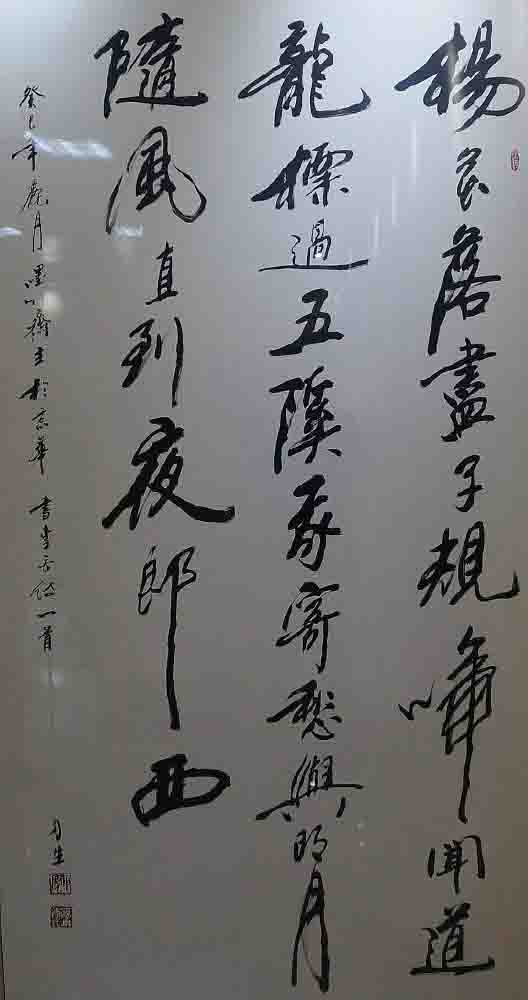 楊花落盡子規啼聞道
龍標過五溪我寄愁與明月
隨風直到夜郎西
癸巳年月齋主於京華 書李白詩一首
生